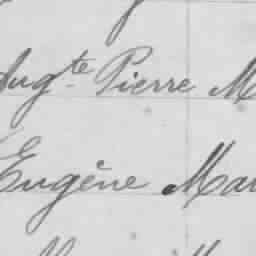 Augte Pierre M
Eugène Mar